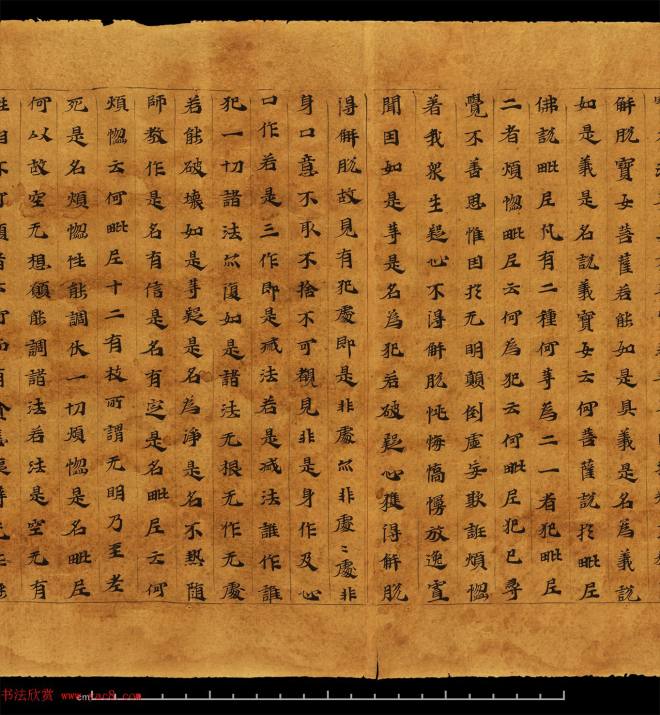 解脱寶女菩薩若能如是具義是名為義説
如是義是名説義寶女云何菩薩説扵毗尼
佛説毗尼凡有二種何等為二一者犯毗尼
二者煩惱毗尼云何為犯云何毗尼犯已尋
覺不善思惟因扵无明顛倒虚妄欺誑煩惱
著我衆生疑心不得解脱悔憍慢放逸宣
聞因如是等是名為犯若破疑心獲得解脱
得解脱故見有犯處即是非處亦非處〻處非
身口意不取不捨不可覩見非是身作及心
口作若是三作即是滅法若是滅法誰作誰
犯一切諸法亦復如是諸法无根无作无處
若能破壞如是等疑是名為淨是名不熱随
師教作是名有信是名有定是名毗尼云何
煩惱云何毗尼十二有枝所謂无明乃至老
死是名煩惱性能調伏一切煩惱是名毗尼
何以故空无想願能調諸法若法是空无有
书法欣赏 www.yac8.com
cm